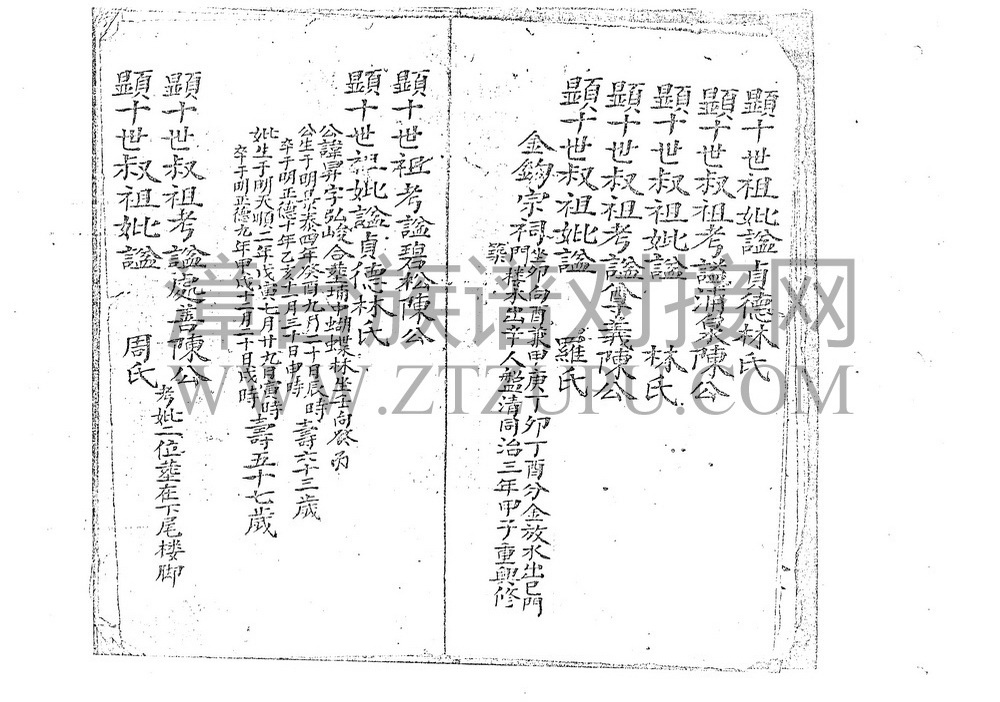 顯十世祖妣謚貞德林氏
顯十世叔祖考謚浦泉陳公
顯十世叔祖妣謚 林氏
顯十世叔祖考謚尊義陳公
顯十世叔祖妣謚 羅氏
金鈎宗祠坐卯向酉兼甲庚丁卯丁酉分金放水出巳門
門樓水出辛人盤清同治三年甲子重興修
築
顯十世祖考謚碧松陳公
顯十世祖妣謚貞德林氏
公諱昇字弘峻合塟埔中蝴蝶林坐壬向
公生于明景泰四年癸酉九月二十日辰時
卒于明正德十年乙亥十一月三十日申時 壽六十三歲
妣生于明天順二年戊寅七月廿九日寅時
卒于明正德九年甲戌十二月二十日戌時 壽五十七歲
顯十世叔祖考謚處善陳公
考妣二位塟在下尾楼脚
顯十世叔祖妣謚 周氏
章氏族谱对接网
WWW.ZTZUPU.COM